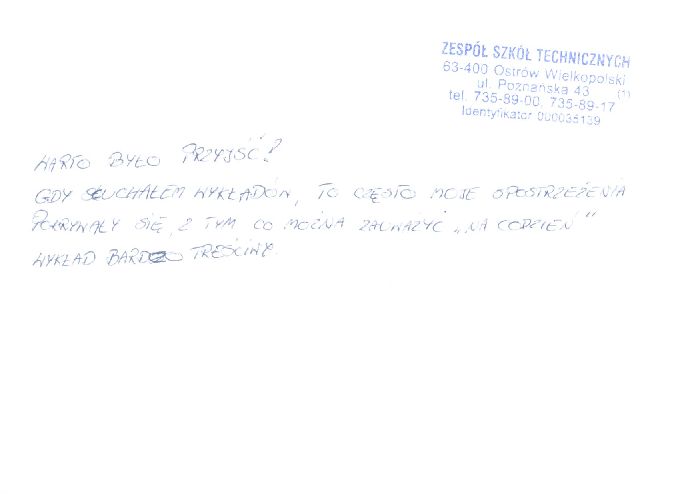 ZESPÓŁ SZKÓŁ TECHNICZNYCH
63-400 Ostrów Wielkopolski
ul. Poznańska 43 (1)
tel. 735-89-00, 735-89-17
Identyfikator 000035139
WARTO BYŁO PRZYJŚĆ?
GDY SŁUCHAŁEM WYKŁADÓW, TO CZĘSTO MOJE SPOSTRZEŻENIA
POKRYWAŁY SIĘ, Z TYM CO MOŻNA ZAUWAŻYĆ „NA CODZIEŃ”
WYKŁAD BARDZO TREŚCIWY.